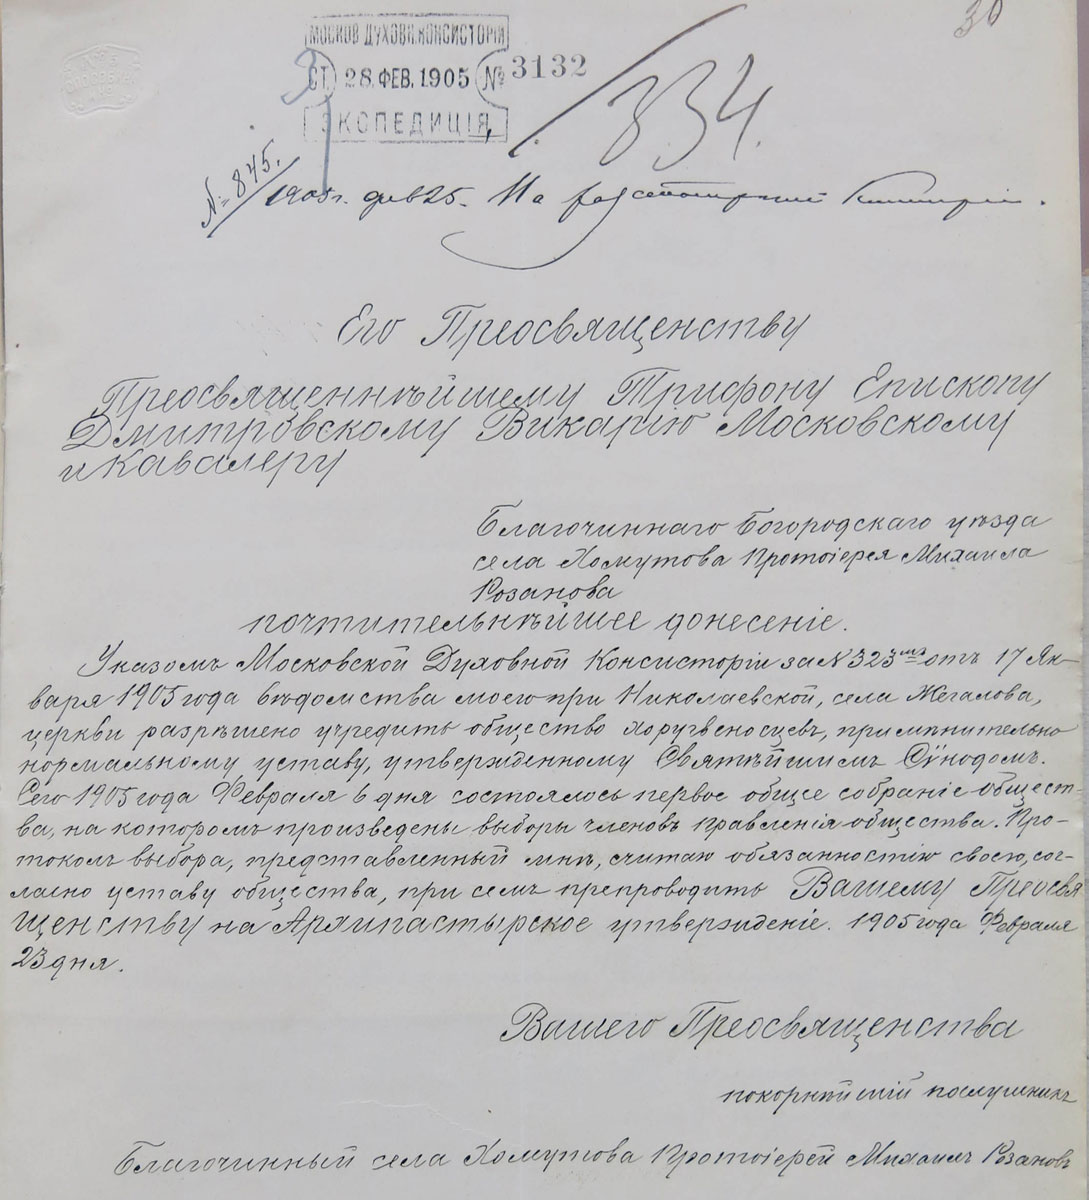 30
МОСКОВ. ДУХОВН. КОНСИСТОРІЯ
СТ. 28 ФЕВ. 1905 № 3132
ЭКСПЕДИЦІЯ
3
334.
№ 845.
1905 г. фев 25. На разсмотрѣніе Консисторіи.
Его Преосвященству
Преосвященнѣйшему Трифону Епископу
Дмитровскому Викарію Московскому
и Кавалеру
Благочиннаго Богородскаго уѣзда
села Хомутова Протоіерея Михаила
Розанова
почтительнѣйшее донесеніе.
Указомъ Московской Духовной Консисторіи за № 323 отъ 17 Ян-
варя 1905 года вѣдомства моего при Николаевской, села Жегалова,
церкви разрѣшено учредить общество хоругвеносцевъ, примѣнительно
нормальному уставу, утвержденному Святѣйшимъ Сѵнодомъ.
Сего 1905 года Февраля 6 дня состоялось первое общее собраніе общест-
ва, на которомъ произведены выборы членовъ правленія общества. Про-
токолъ выбора, представленный мнѣ, считаю обязанностію своею, сог-
ласно уставу общества, при семъ препроводить Вашему Преосвя
щенству на Архипастырское утвержденіе. 1905 года Февраля
23 дня.
Вашего Преосвященства
покорнѣйшій послушникъ
Благочинный села Хомутова Протоіерей Михаилъ Розановъ